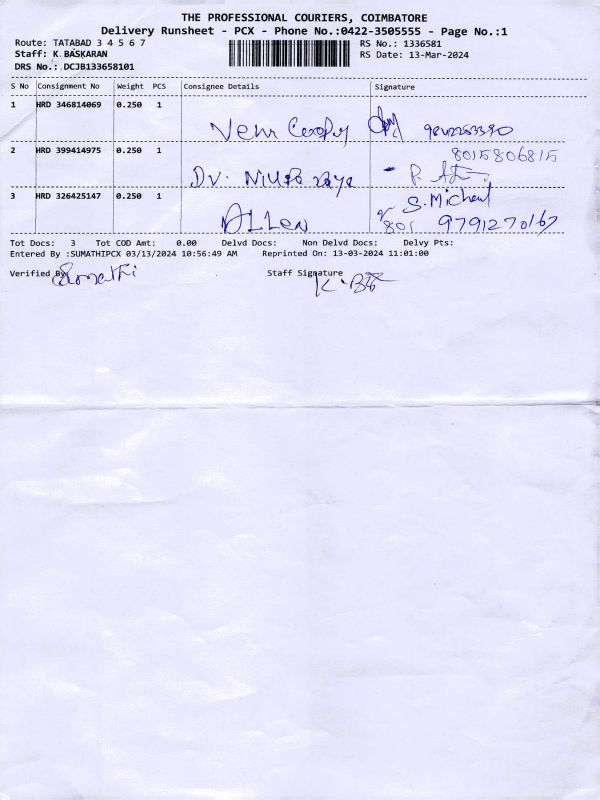 THE PROFESSIONAL COURIERS, COIMBATORE
Delivery Runsheet - PCX - Phone No.:0422-3505555 - Page No.:1
Route: TATABAD 3 4 5 6 7
RS No.: 1336581
Staff: K.BASKARAN
RS Date: 13-Mar-2024
DRS No.: DCJB133658101
S No Consignment No Weight PCS Consignee Details Signature
1 HRD 346814069 0.250 1
2 HRD 399414975 0.250 1
8015806815
Dr.
3 HRD 326425147 0.250 1
S. Micheal
ALLEN 801 9791270167
Tot Docs: 3 Tot COD Amt: 0.00 Delvd Docs: Non Delvd Docs: Delvy Pts:
Entered By :SUMATHIPCX 03/13/2024 10:56:49 AM Reprinted On: 13-03-2024 11:01:00
Verified By Sumathi Staff Signature